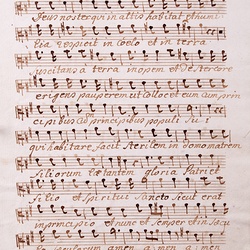 Deus noster qui in altis habitat et humi
lia respicit in Coelo et in terra
suscitans a terra inopem et De stercore
erigens pauperem ut Collocet eum cum prin
cipibus cum principibus populi Sui
qui habitare facit Sterilem in domo matrem
filiorum laetantem gloria Patri et
Filio et Spiritui Sancto Sicut erat
in principio et nunc et Semper et in Saecu
la Saeculorum amen amen a men